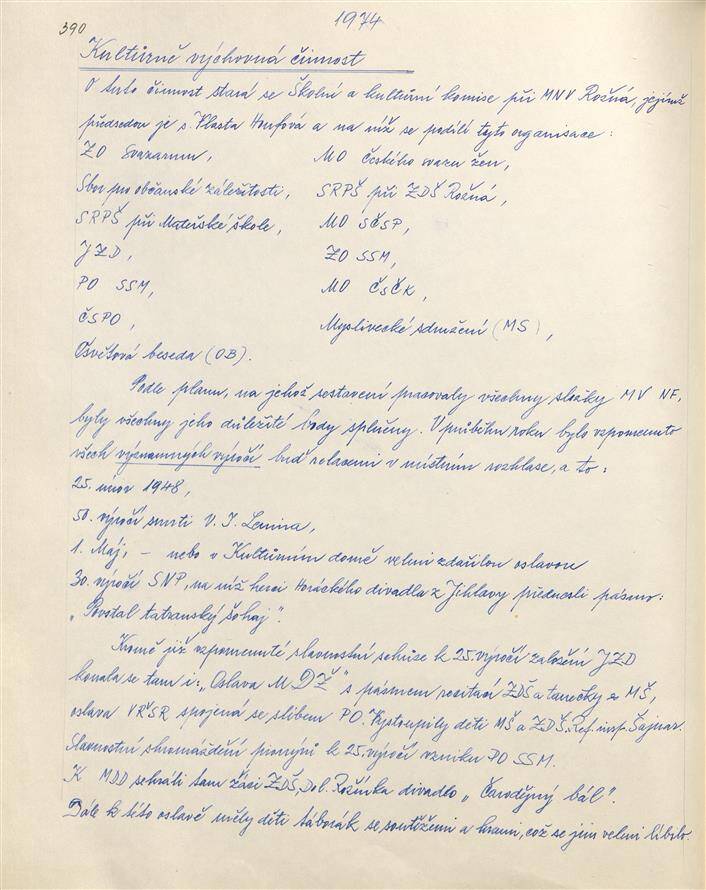 390
1974
Kulturně výchovná činnost
O tuto činnost stará se Školní a kulturní komise při MNV Rožná, jejímž
předsedou je s. Vlasta Houfová a na níž se podílí tyto organisace:
ZO Svazarmu, MO Českého svazu žen,
Sbor pro občanské záležitosti, SRPŠ při ZDŠ Rožná,
SRPŠ při Mateřské škole, MO SČSP,
JZD, ZO SSM,
PO SSM, MO ČSČK,
ČSPO, Myslivecké sdružení (MS),
Osvětová beseda (OB).
Podle plánu, na jehož sestavení pracovaly všechny složky MV NF,
byly všechny jeho důležité body splněny. V průběhu roku bylo vzpomenuto
všech významných výročí buď relacemi v místním rozhlase, a to:
25. únor 1948,
50. výročí smrti V. I. Lenina,
1. Máj, – nebo v Kulturním domě velmi zdařilou oslavou
30. výročí SNP, na níž herci Horáckého divadla z Jihlavy přednesli pásmo:
„Povstal tatranský šohaj".
Kromě již vzpomenuté slavnostní schůze k 25. výročí založení JZD
konala se tam i: „Oslava MDŽ" s pásmem recitací ZDŠ a tanečky z MŠ,
oslava VŘSR spojená se slibem PO. Vystoupily děti MŠ a ZDŠ. Ref. insp. Šajnar.
Slavnostní shromáždění pionýrů k 25. výročí vzniku PO SSM.
K MDD sehráli tam žáci ZDŠ, Dol. Rožínka divadlo „Čarodějný bál".
Dále k této oslavě měly děti táborák se soutěžemi a hrami, což se jim velmi líbilo.